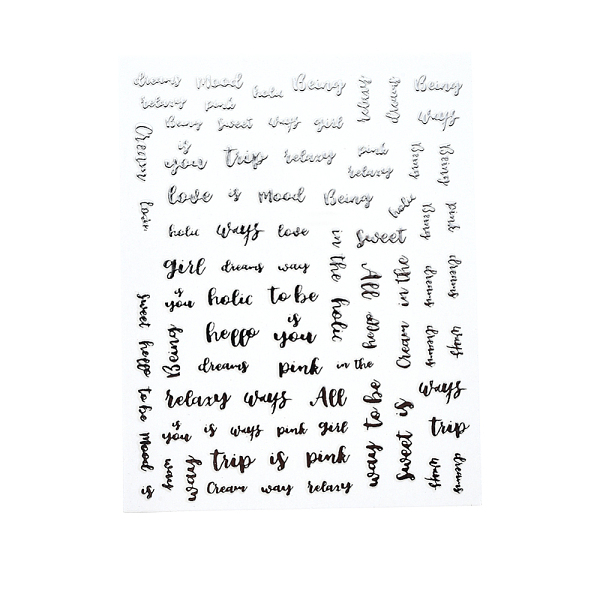 dreams Mood holic Being relaxy dreams Being
relaxy pink ways
Being sweet ways girl
Cream is you trip relaxy pink Being Being
relaxy
love love is Mood Being holic Being pink
holic ways love in the holic sweet
girl dreams way All hello Cream in the dreams dreams
is you holic to be
sweet hello to be Mood is Being hello is you dreams ways
dreams pink in the
relaxy ways All way to be sweet is ways
is you is ways pink girl trip
way ways trip is pink ways dreams
Cream way relaxy